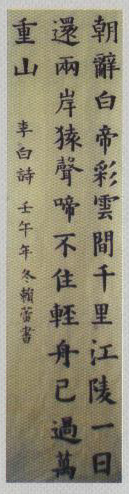 朝辭白帝彩雲間千里江陵一日
還兩岸猿聲啼不住輕舟已過萬
重山
李白詩 壬午年冬賴蕾書